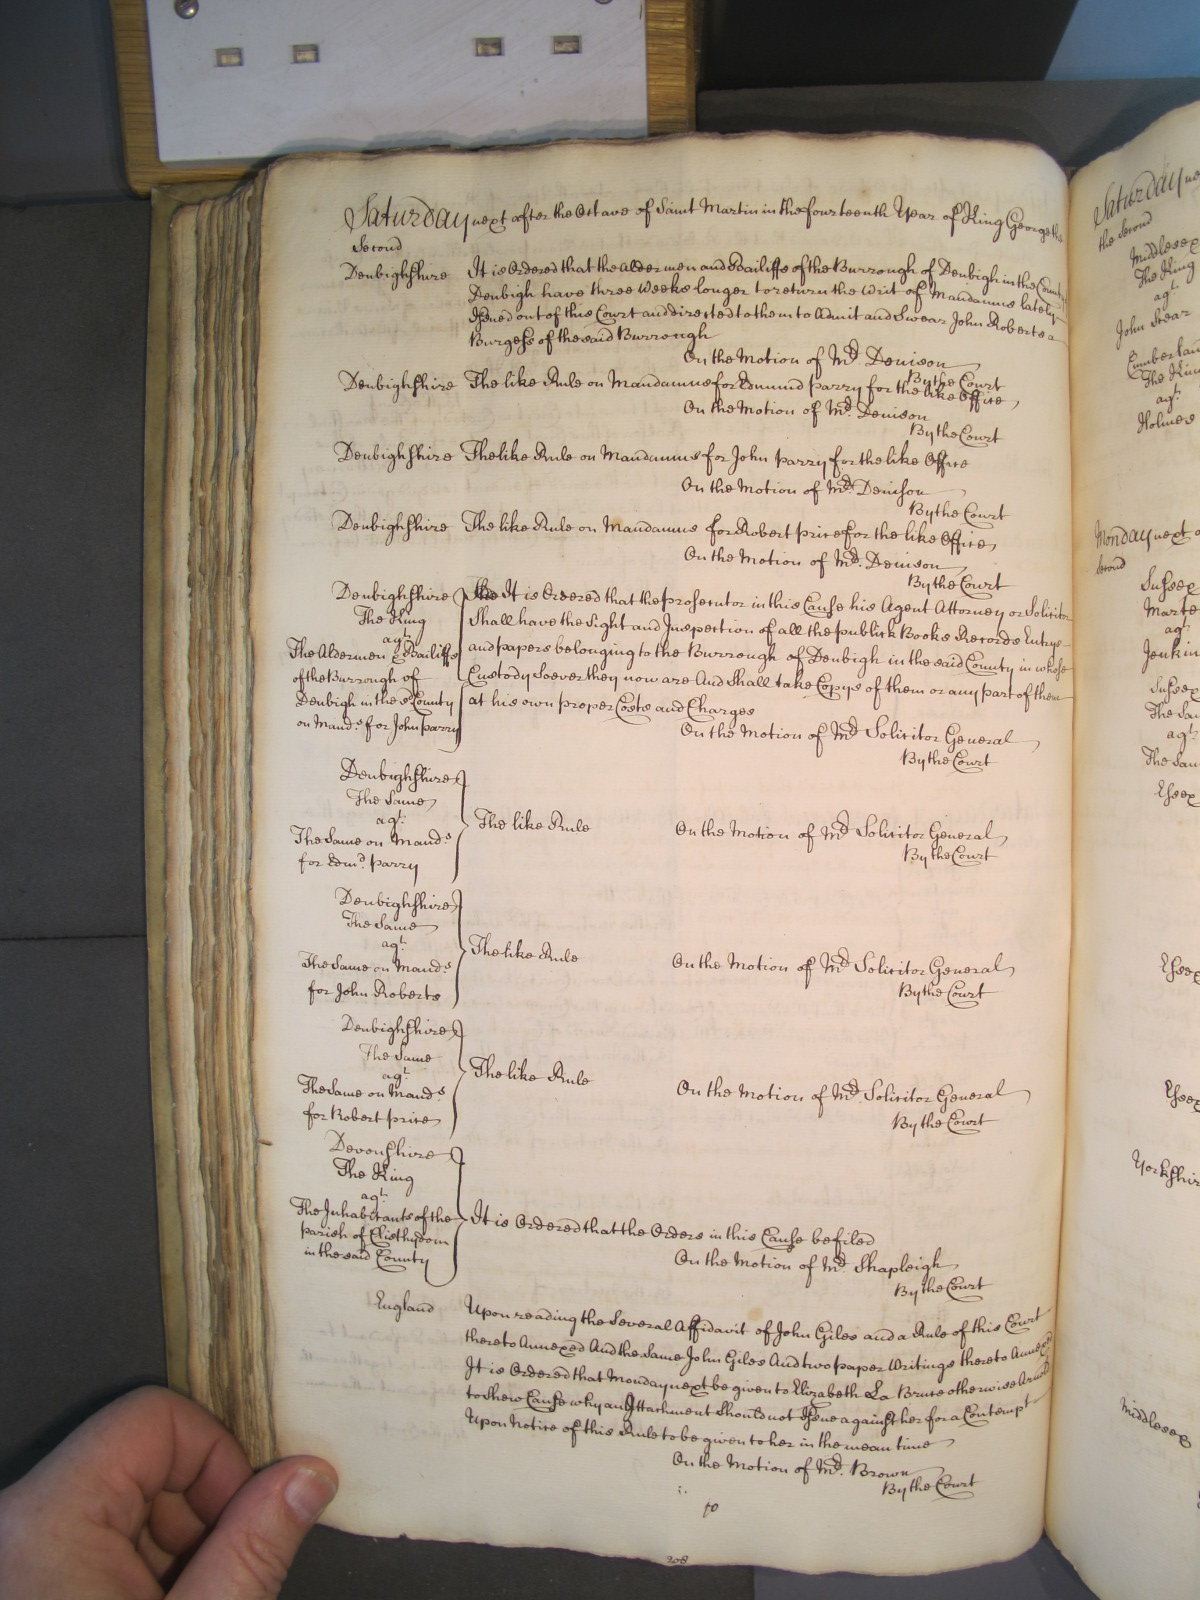 Saturday next after the Octave of Saint Martin in the fourteenth Year of King George the
Second
Denbighshire It is Ordered that the Aldermen and Bailiffs of the Burrough of Denbigh in the County
Denbigh have three Weeks longer to return the Writ of Mandamus lately
Issued out of this Court and directed to them to Admit and Swear John Roberts a
Burgess of the said Burrough
On the Motion of Mr. Denison
By the Court
Denbighshire The like Rule on Mandamus for Edmund Parry for the like Office
On the Motion of Mr. Denison
By the Court
Denbighshire The like Rule on Mandamus for John Parry for the like Office
On the Motion of Mr. Denison
By the Court
Denbighshire The like Rule on Mandamus for Robert Price for the like Office
On the Motion of Mr. Denison
By the Court
Denbighshire
The King
agt.
The Aldermen & Bailiffs
of the Burrough of
Denbigh in the sd. County
on Mands. for John Parry
It is Ordered that the prosecutor in this Cause his Agent Attorney or Solicitor
Shall have the Sight and Inspection of all the publick Books Records Entrys
and papers belonging to the Burrough of Denbigh in the said County in whose
Custody Soever they now are And Shall take Copys of them or any part of them
at his own proper Costs and Charges
On the Motion of Mr. Solicitor General
By the Court
Denbighshire
The Same
agt.
The Same on Mands.
for Edmd. Parry
The like Rule On the Motion of Mr. Solicitor General
By the Court
Denbighshire
The Same
agt.
The Same on Mands.
for John Roberts
The like Rule On the Motion of Mr. Solicitor General
By the Court
Denbighshire
The Same
agt.
The Same on Mands.
for Robert Price
The like Rule On the Motion of Mr. Solicitor General
By the Court
Devonshire
The King
agt.
The Inhabitants of the
parish of Clisthydon
in the said County
It is Ordered that the Orders in this Cause be filed
On the Motion of Mr. Shapleigh
By the Court
England Upon reading the Several Affidavit of John Giles and a Rule of this Court
thereto Annexed And the Same John Giles And two paper Writings thereto Annexed
It is Ordered that Monday next be given to Elizabeth La Brute otherwise
to Shew Cause why an Attachment Should not Issue against her for a Contempt
Upon Notice of this Rule to be given to her in the mean time
On the Motion of Mr. Brown
By the Court
308
Saturday
the Second
Middlesex
The King
agt.
John Stear
The
agt.
Holmes
Monday next
Second
Sussex
agt.
Sussex
agt.
Essex
Essex
Essex
Middlesex